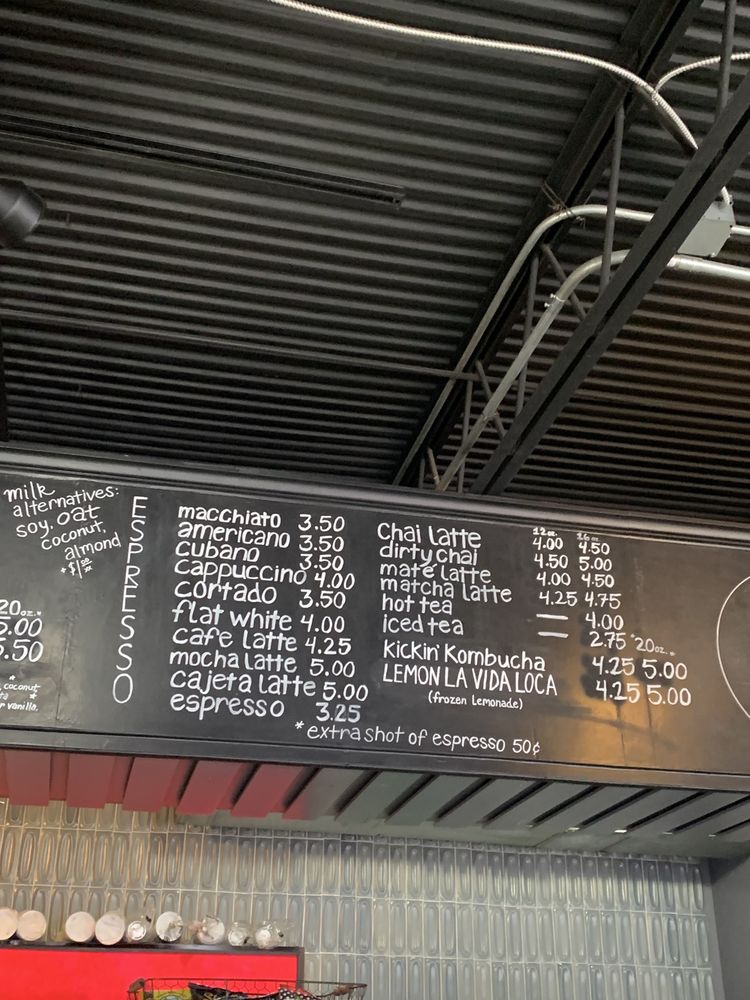 milk
alternatives:
soy, oat
coconut,
almond
+$1.00
20oz.
5.00
5.50
coconut
vanilla.
ESPRESSO
macchiato 3.50
americano 3.50
cubano 3.50
cappuccino 4.00
cortado 3.50
flat white 4.00
cafe latte 4.25
mocha latte 5.00
cajeta latte 5.00
espresso 3.25
*extra shot of espresso 50¢
12oz. 16oz.
Chai latte 4.00 4.50
dirty chai 4.50 5.00
maté latte 4.00 4.50
matcha latte 4.25 4.75
hot tea — 4.00
iced tea — 2.75 *20oz.*
Kickin' Kombucha 4.25 5.00
LEMON LA VIDA LOCA 4.25 5.00
(frozen Lemonade)